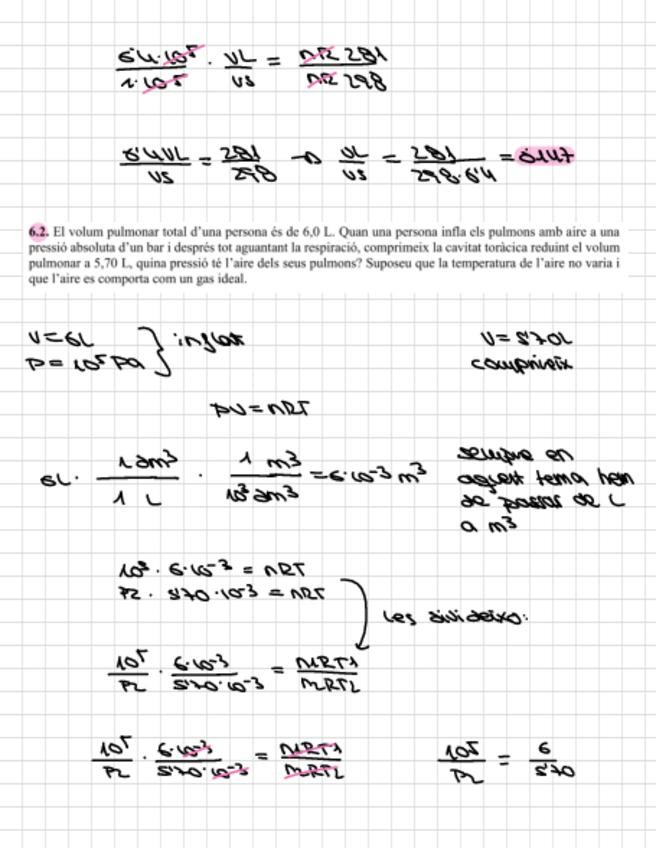 6'4·10⁵/1·10⁵ · VL/VS = nR 281/nR 298
6'4VL/VS = 281/298 → VL/VS = 281/298·6'4 = 0'147
6.2. El volum pulmonar total d'una persona és de 6,0 L. Quan una persona infla els pulmons amb aire a una
pressió absoluta d'un bar i després tot aguantant la respiració, comprimeix la cavitat toràcica reduint el volum
pulmonar a 5,70 L, quina pressió té l'aire dels seus pulmons? Suposeu que la temperatura de l'aire no varia i
que l'aire es comporta com un gas ideal.
V=6L
P=10⁵ Pa } inflar
V=5'70L
comprimeix
PV=nRT
6L· 1dm³/1 L · 1 m³/10³dm³ = 6·10⁻³ m³
sempre en
aquest tema hem
de passar de L
a m³
10⁵ · 6·10⁻³ = nRT
P2 · 5'70·10⁻³ = nRT
Les divideixo:
10⁵/P2 · 6·10⁻³/5'70·10⁻³ = nRT1/nRT2
10⁵/P2 · 6·10⁻³/5'70·10⁻³ = nRT1/nRT2
10⁵/P2 = 6/5'70